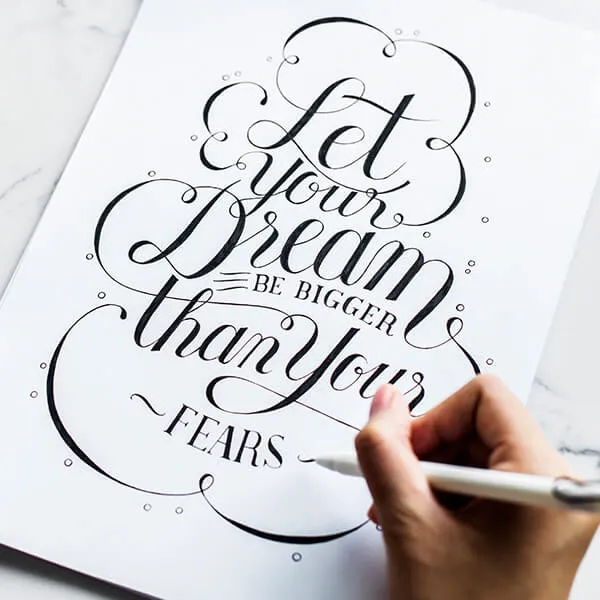 Let
your
Dream
BE BIGGER
than Your
~FEARS~